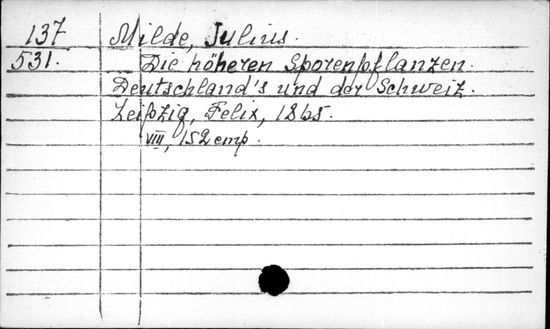 137 Milde, Julius.
531. Die höheren Sporenpflanzen
Deutschland's und der Schweiz.
Leipzig, Felix, 1865.
VIII, 152 стр.